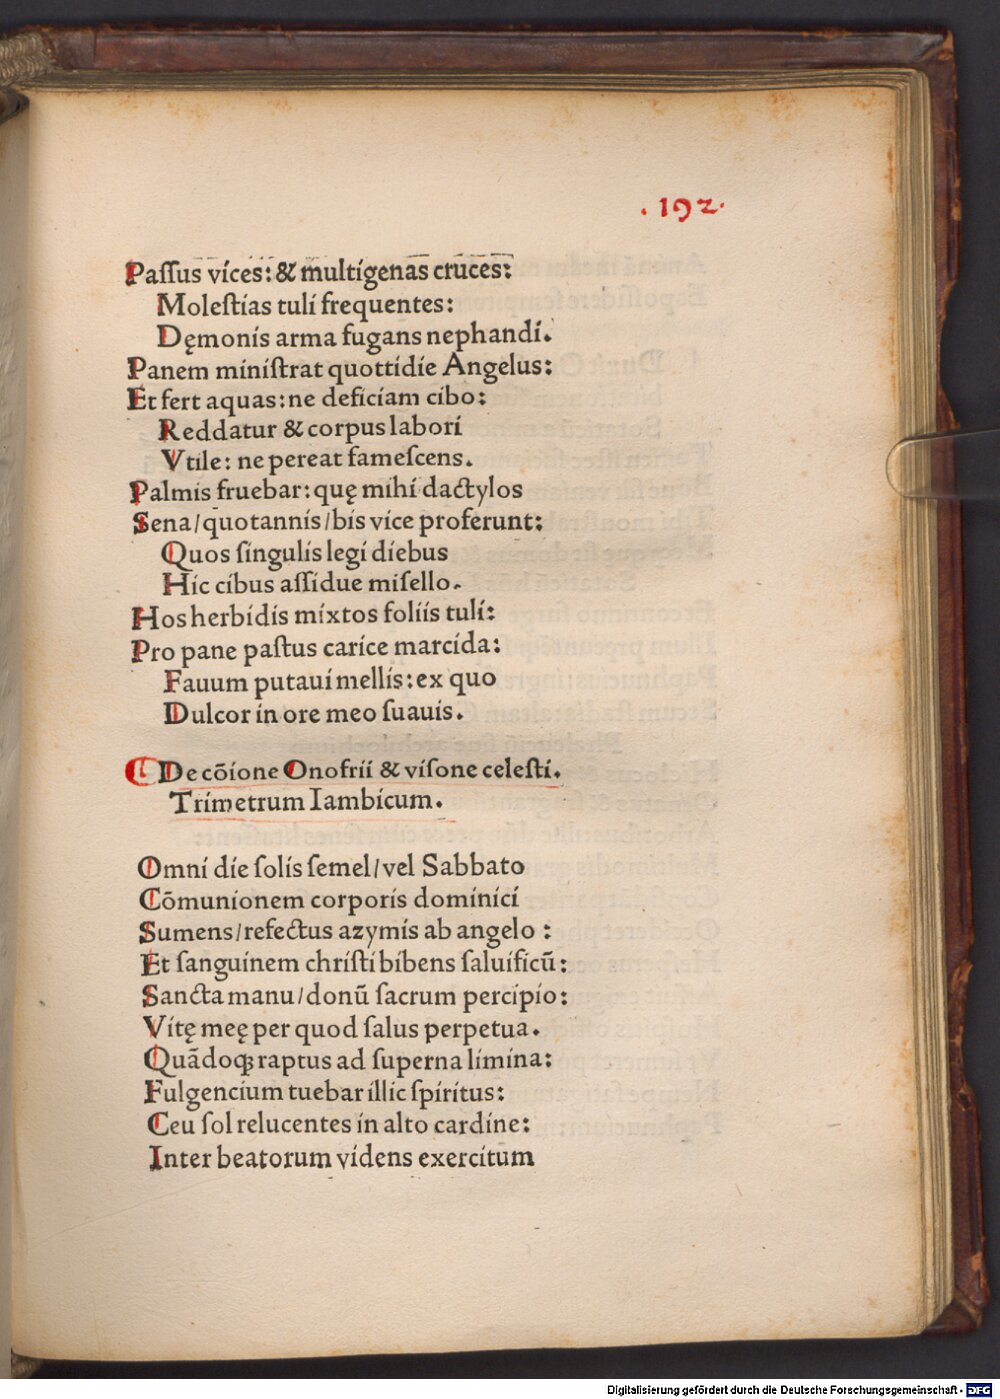 .192.
Paſſus vices: & multigenas cruces:
Moleſtias tuli frequentes:
Dęmonis arma fugans nephandi.
Panem miniſtrat quottidie Angelus:
Et fert aquas: ne deficiam cibo:
Reddatur & corpus labori
Vtile: ne pereat fameſcens.
Palmis fruebar: quę mihi dactylos
Sena/quotannis/bis vice proferunt:
Quos ſingulis legi diebus
Hic cibus aſſidue miſello.
Hos herbidis mixtos foliis tuli:
Pro pane paſtus carice marcida:
Fauum putaui mellis: ex quo
Dulcor in ore meo ſuauis.
De cōione Onofrii & viſone celeſti.
Trimetrum Iambicum.
Omni die ſolis ſemel/vel Sabbato
Cōmunionem corporis dominici
Sumens/refectus azymis ab angelo :
Et ſanguinem chriſti bibens ſaluificū:
Sancta manu/donū ſacrum percipio:
Vitę meę per quod ſalus perpetua.
Quādoqꝫ raptus ad ſuperna limina:
Fulgencium tuebar illic ſpiritus:
Ceu ſol relucentes in alto cardine:
Inter beatorum videns exercitum
Digitalisierung gefördert durch die Deutsche Forschungsgemeinschaft - DFG